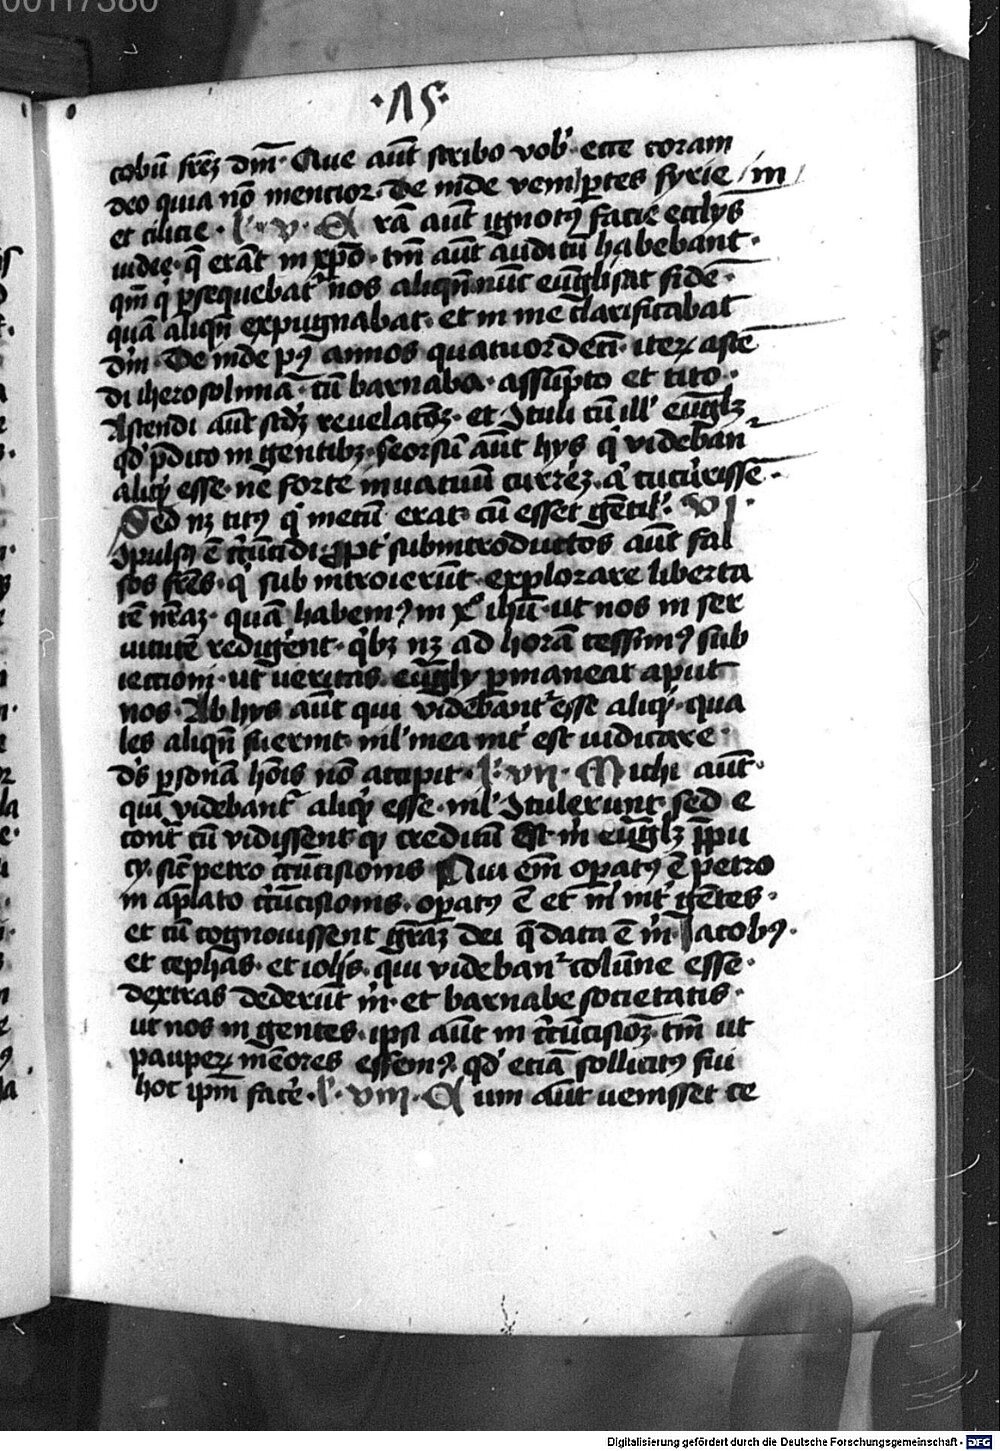 00117380
·15·
cobū frēz dm̄· Que aūt scribo vob' ecce coram
deo quia nō mencior· De inde veni ꝑtes syrie in
et cilicie· l'· v· Erā aūt ignotꝰ facie ecclijs
iudee· q̄ erāt in xp̄o· tm̄ aūt auditū habebant·
qm̄ q̇ ꝑsequebat' nos aliqn̄ nūc euāglisat fidē·
quā aliqn̄ expugnabat· et in me clarificabāt
dn̄· De inde pꝰ annos quatuordecī· iteꝝ ascē
di iherosolimā· cū barnaba· assūpto et tito·
Ascendi aūt scdꝫ revelacōꝫ· et ꝯtuli cū ill' euāglꝫ
qd' p̄dico in gentibꝫ· seorsū aūt hys q̇ videban
aliqͥ esse· ne forte in vacuū currēz· aͭ cucurissē·
Sed nꝫ titꝰ q̇ mecū erat· cū esset gētil'· VI·
ꝯpulsꝰ ē cͬcūcidi· ꝓpt' subintroductos aūt fal
sos frēs· q̇ subintroierūt· explorare liberta
tē nr̄az· quā habemꝰ in xº ihū· ut nos in ser
vitutē redigēnt· q̇bꝫ nꝫ ad horā cessimꝰ sub
iectioni· ut veritas euāgly ꝑmaneat aput
nos· Ab hys aūt qui videbant' esse aliqͥ· qua
les aliqn̄ fuerint· nil' mea int' est iudicare·
dꝰs ꝑsonā hōis nō accipit· l'· vii· Michi aūt·
qui videbant' aliqͥ esse· nil' ꝯtulerunt· sed e
cont' cū vidissent qꝫ creditū est m̄ euāglꝫ p̄pu
cy· sic' petro cͬcūcisionis Qui em̄ oꝑatꝰ ē petro
in aplāto cͬcūcisionis· oꝑatꝰ ē et m̄ int' gētes·
et cū cognouissent grāꝫ dei q̄ data ē m̄· Jacobꝰ·
et cephas· et iohs̄· qui videban' colūne esse·
dextras dederūt m̄· et barnabe societatis·
ut nos in gentes· ipsi aūt in cͬcūcisioꝫ· tm̄ ut
pauꝑeꝝ mēores essemꝰ· qd' eciā sollicitꝰ fui
hoc ipm̄ facē· l'· viii· Cum aūt uenisset ce
Digitalisierung gefördert durch die Deutsche Forschungsgemeinschaft - DFG